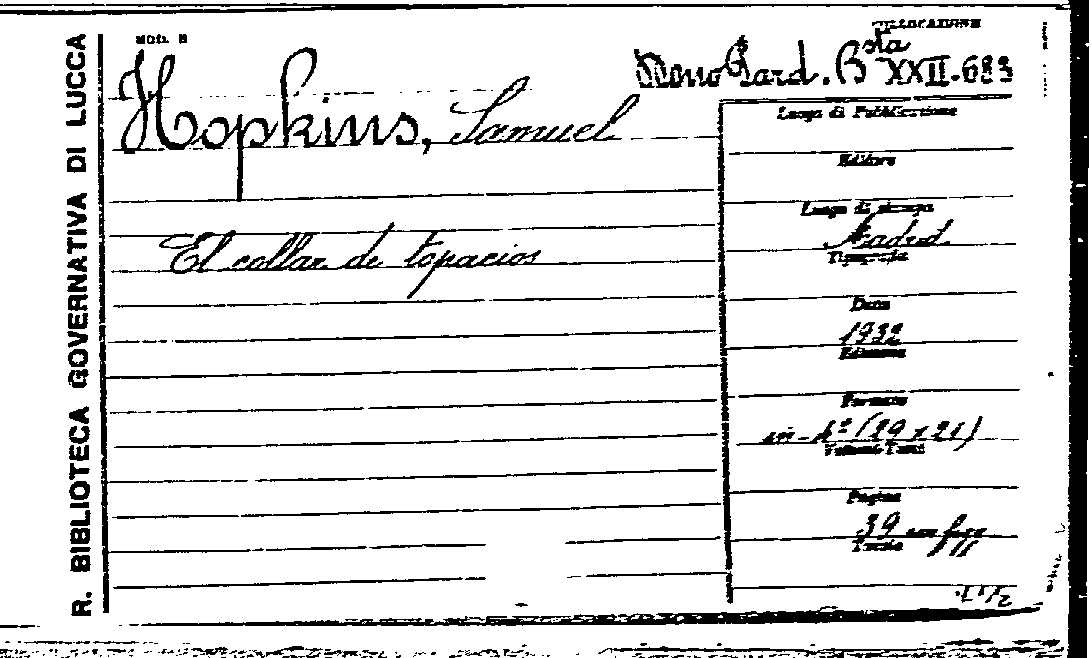 R. BIBLIOTECA GOVERNATIVA DI LUCCA
MOD. B
COLLOCAZIONE
Hopkins, Samuel
Gard. Bsta XXII.683
Luogo di Pubblicazione
Editore
Luogo di stampa
El collar de topacios
Madrid
Tipografia
Data
1932
Edizione
Formato
in-4º (29 x 21)
Volumi-Tomi
Pagine
39 con figg
Tavole